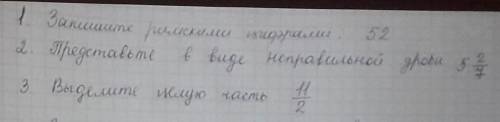 1. Запишите римскими цифрами. 52
2. Представьте в виде неправильной дроби 5 2/7
3. Выделите целую часть 11/2